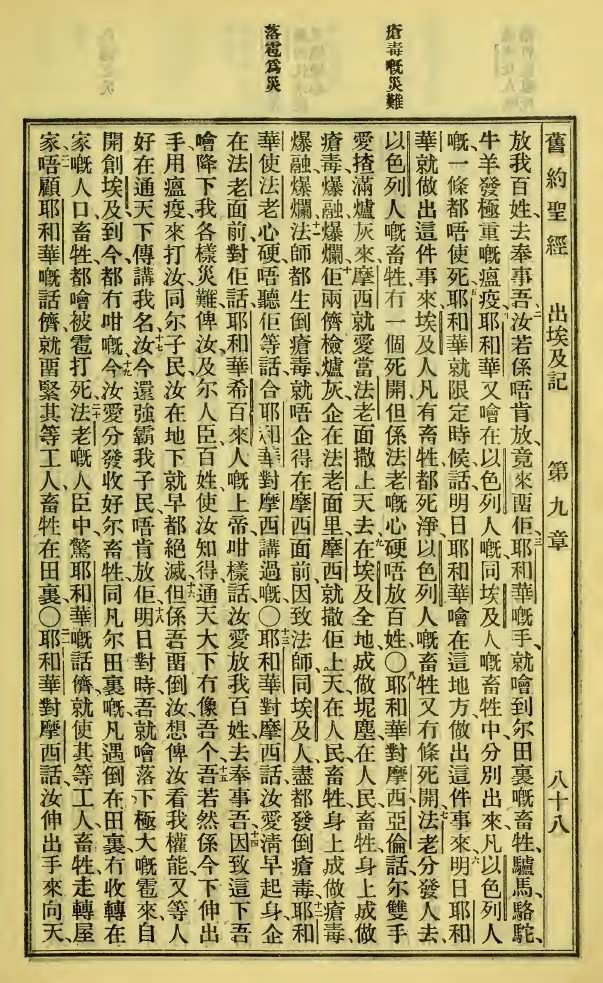 瘡毒嘅災難
落雹爲災
舊約聖經 出埃及記 第九章 八十八
放我百姓去奉事吾、二汝若係唔肯放、竟來畱佢、三耶和華嘅手就噲到尔田裏嘅畜牲、驢馬、駱駝、
牛羊發極重嘅瘟疫、四耶和華又噲在以色列人嘅同埃及人嘅畜牲中分別出來、凡以色列人
嘅一條都唔使死、五耶和華就限定時候話、明日耶和華噲在這地方做出這件事來、六明日耶和
華就做出這件事來、埃及人凡有畜牲都死淨、以色列人嘅畜牲又冇條死開、七法老分發人去、
以色列人嘅畜牲冇一個死開、但係法老嘅心硬唔放百姓、〇八耶和華對摩西亞倫話、尔雙手
愛揸滿爐灰來、摩西就愛當法老面撒上天去、九在埃及全地成做坭塵、在人民畜牲身上成做
瘡毒、爆融爆爛、十佢兩儕檢爐灰企在法老面里、摩西就撒佢上天、在人民畜牲身上成做瘡毒、
爆融爆爛、十一法師都生倒瘡毒、就唔企得在摩西面前、因致法師同埃及人盡都發倒瘡毒、十二耶和
華使法老心硬、唔聽佢等話、合耶和華對摩西講過嘅、〇十三耶和華對摩西話、汝愛淸早起身、企
在法老面前、對佢話、耶和華希百來人嘅上帝咁樣話、汝愛放我百姓去奉事吾、十四因致這下吾
噲降下我各樣災難俾汝、及尔人臣百姓、使汝知得通天大下冇像吾个、十五吾若然係今下伸出
手用瘟疫來打汝同尔子民、汝在地下就早都絕滅、十六但係吾畱倒汝、想俾汝看我權能、又等人
好在通天下傳講我名、十七汝今還強霸我子民、唔肯放佢、十八明日對時、吾就噲落下極大嘅雹來、自
開創埃及到今都冇咁嘅、十九今汝愛分發收好尔畜牲、同凡尔田裏嘅、凡遇倒在田裏、冇收轉在
家嘅人口畜牲、都噲被雹打死、二十法老嘅人臣中、驚耶和華嘅話儕、就使其等工人畜牲走轉屋
家、二一唔顧耶和華嘅話儕、就畱緊其等工人畜牲在田裏、〇二二耶和華對摩西話、汝伸出手來向天、